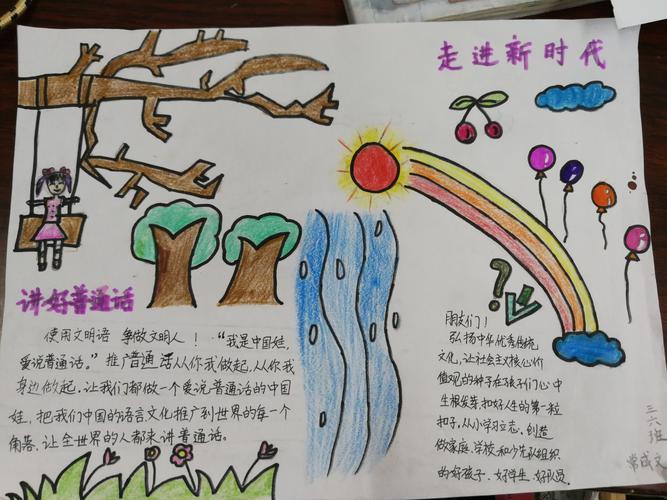 走进新时代
讲好普通话
使用文明语 争做文明人！“我是中国娃,
爱说普通话。”推广普通话从你我做起,从你我
身边做起.让我们都做一个爱说普通话的中国
娃,把我们中国的语言文化推广到世界的每一个
角落、让全世界的人都来讲普通话。
朋友们！
弘扬中华优秀传统
文化,让社会主义核心价
值观的种子在孩子们心中
生根发芽.扣好人生的第一粒
扣子,从小学习立志、创造
做家庭、学校和少先队组织
的好孩子、好学生、好队员.
三六班
常成文